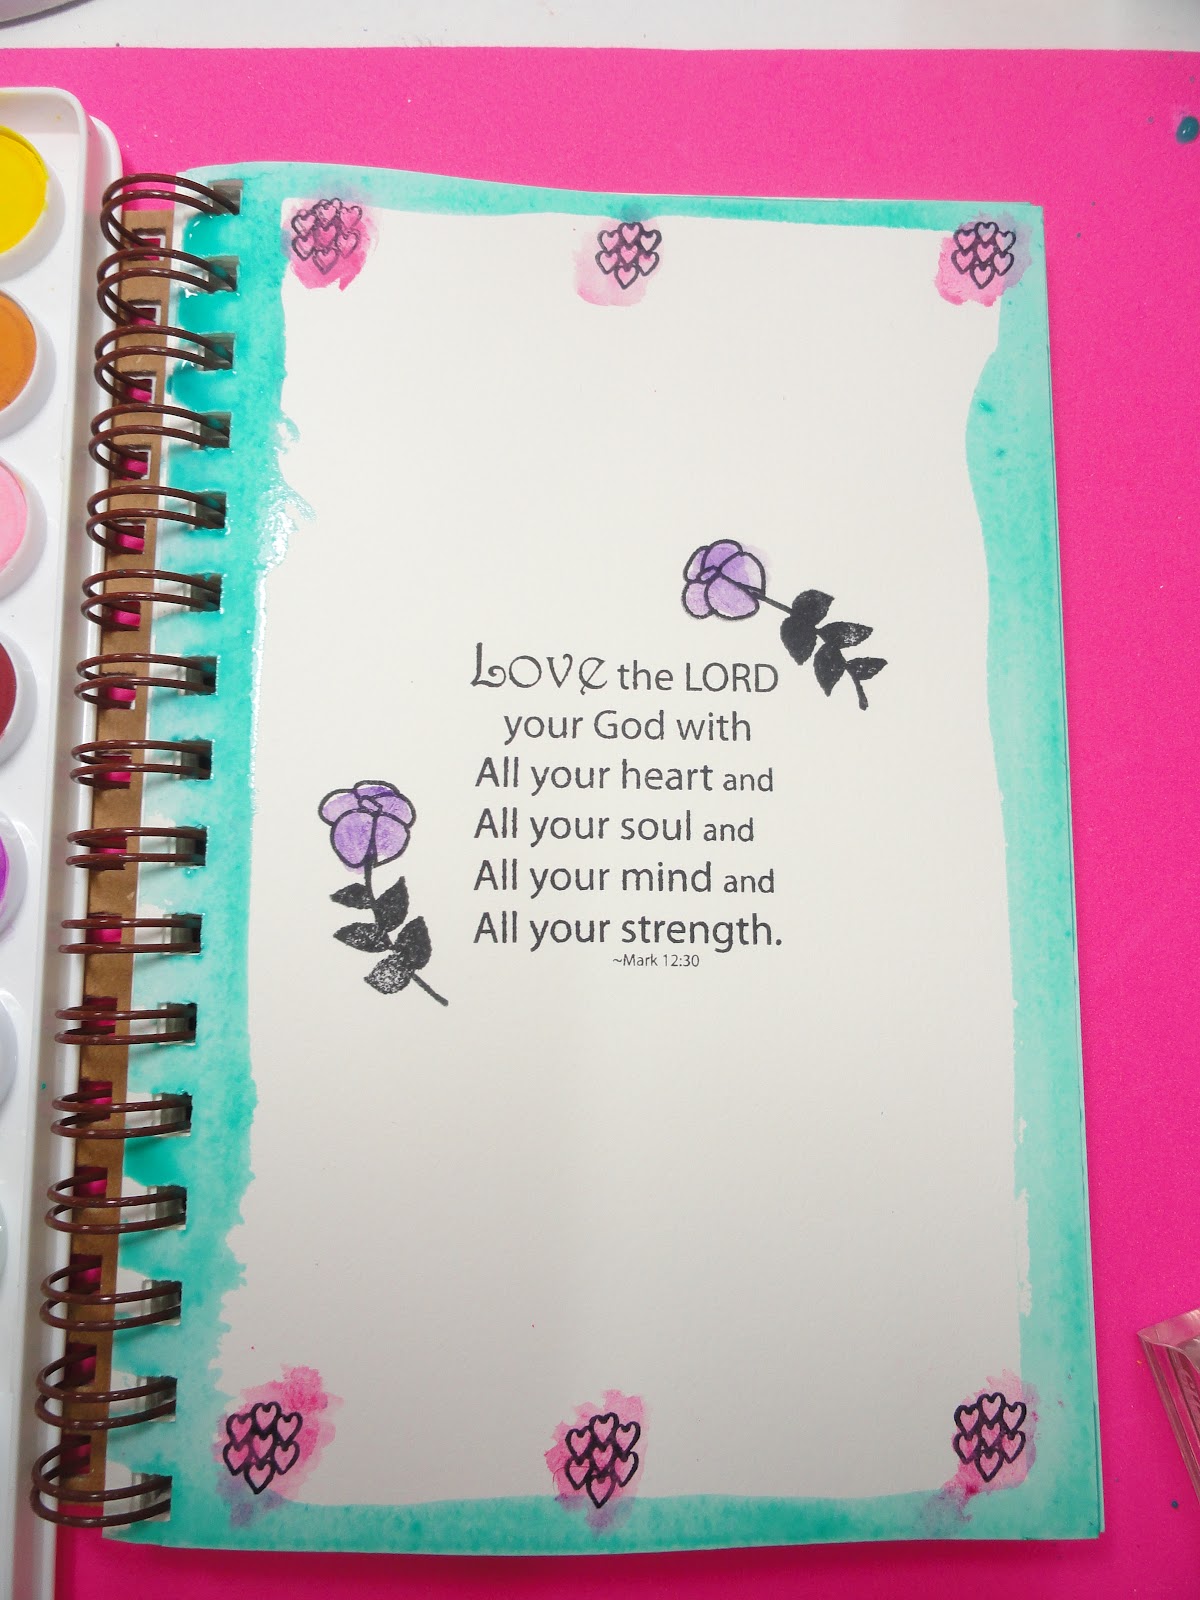 LOVE the LORD
your God with
All your heart and
All your soul and
All your mind and
All your strength.
~Mark 12:30